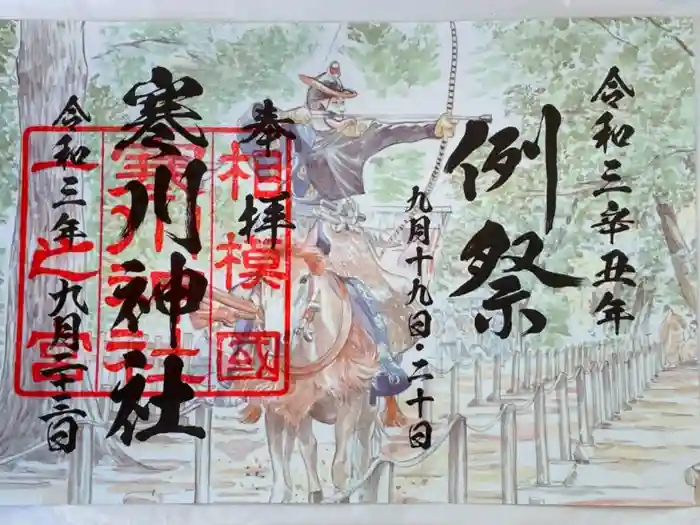 令和三辛丑年
例祭
九月十九日・二十日
奉拝
相模國
寒川神社
一之宮
令和三年九月二十三日